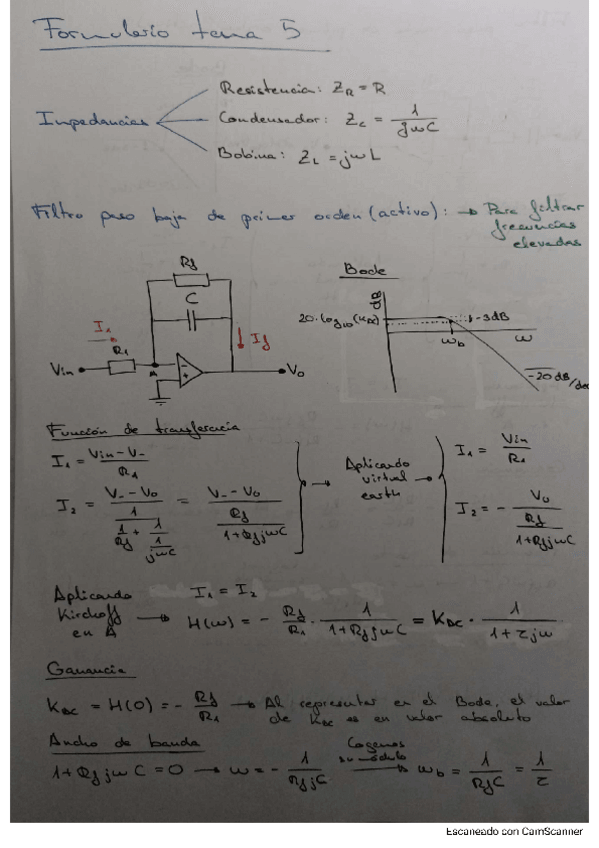 Formulario tema 5
Resistencia: Z_R = R
Impedancias
Condensador: Z_C = 1/(jωC)
Bobina: Z_L = jωL
Filtro paso baja de primer orden (activo): → Para filtrar
frecuencias
elevadas
Rf
C
I₁
R₁
Vin
A
-
+
If
Vo
Bode
dB
20·log₁₀(K_DC)
-3dB
ω_b
ω
-20 dB/dec
Función de transferencia
I₁ = (Vin - V₋)/R₁
I₂ = (V₋ - Vo)/(1/(1/Rf + 1/(1/(jωC)))) = (V₋ - Vo)/(Rf/(1+RfjωC))
→ Aplicando virtual earth →
I₁ = Vin/R₁
I₂ = - Vo/(Rf/(1+RfjωC))
Aplicando Kirchoff en A →
I₁ = I₂
H(ω) = - Rf/R₁ · 1/(1+RfjωC) = K_DC · 1/(1+τjω)
Ganancia
K_DC = H(0) = - Rf/R₁ → Al representar en el Bode, el valor
de K_DC es en valor absoluto
Ancho de banda
1+RfjωC = 0 → ω = - 1/(RfjC) Cogemos su módulo → ω_b = 1/(RfC) = 1/τ
Escaneado con CamScanner